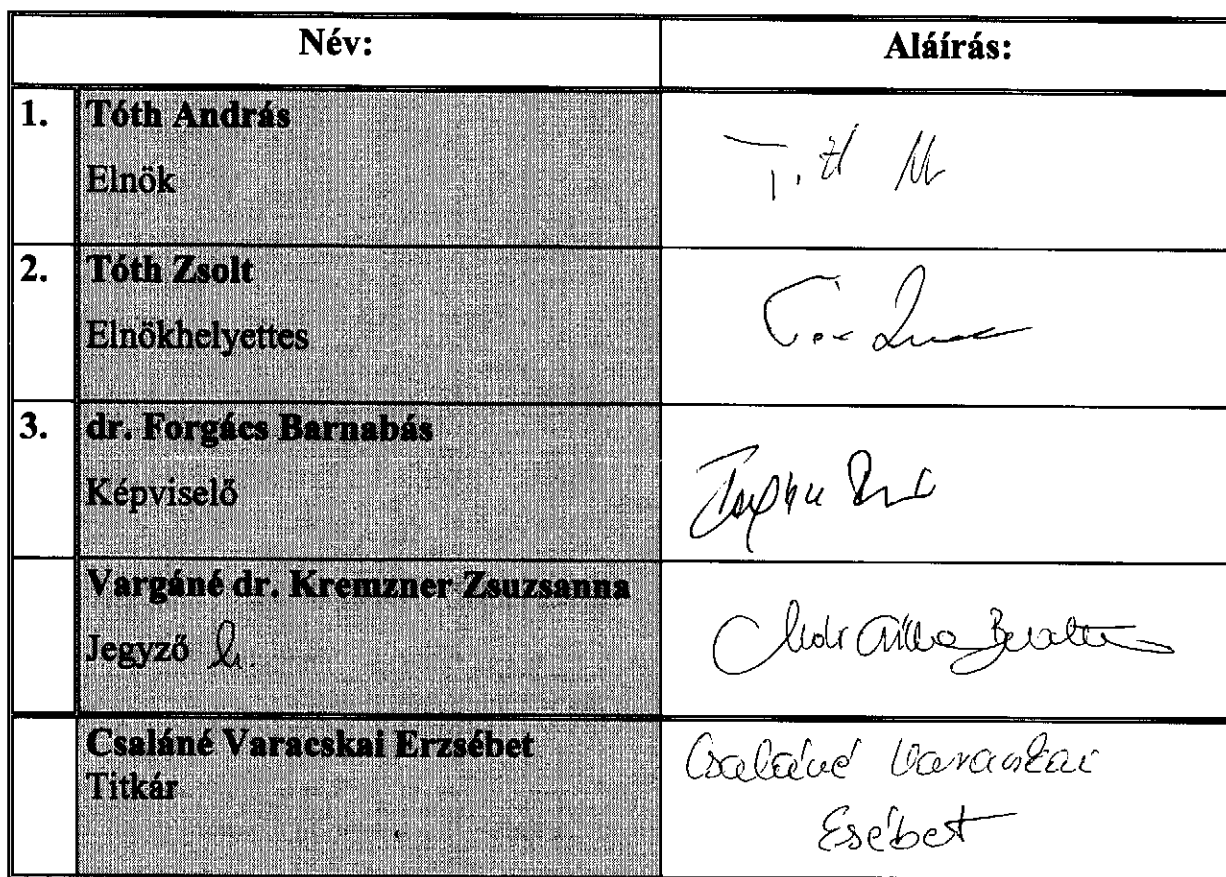 Név: Aláírás:
1. Tóth András
Elnök
2. Tóth Zsolt
Elnökhelyettes
3. dr. Forgács Barnabás
Képviselő
Vargáné dr. Kremzner Zsuzsanna
Jegyző h.
Csaláné Varacskai Erzsébet
Titkár
Csaláné Varacskai
Esébet